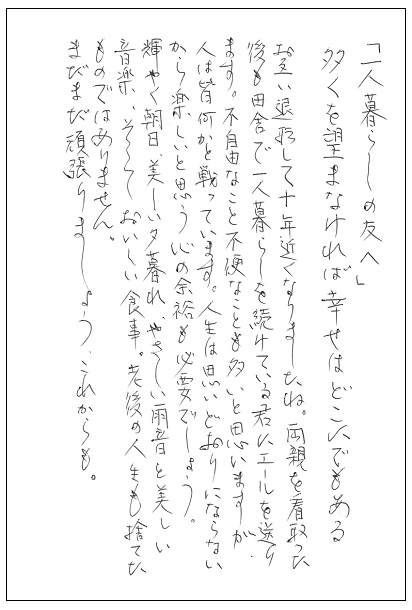 「一人暮らしの友へ」
多くを望まなければ幸せはどこにでもある
お互い退職して十年近くなりましたね。両親を看取った
後も田舎で一人暮らしを続けている君にエールを送り
ます。不自由なこと不便なことも多いと思いますが、
人は皆何かと戦っています。人生は思いどおりにならない
から楽しいと思う心の余裕も必要でしょう。
輝やく朝日、美しい夕暮れ、やさしい雨音と美しい
音楽、そしておいしい食事。老後の人生も捨てた
ものではありません。
まだまだ頑張りましょう、これからも。